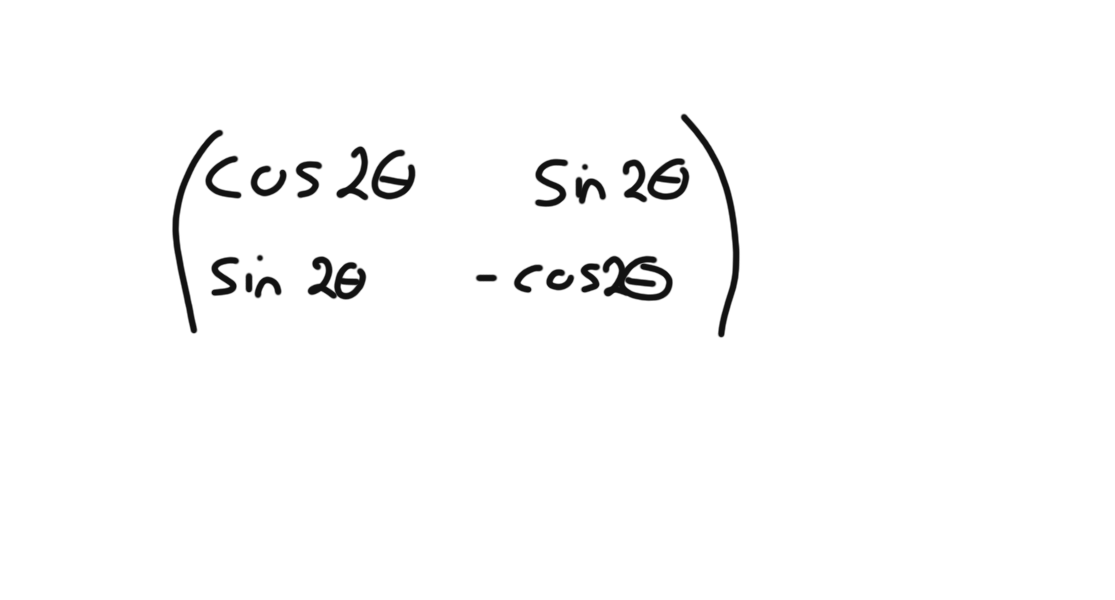 cos 2θ sin 2θ
sin 2θ - cos2θ